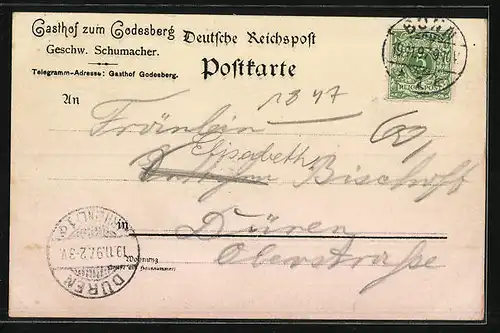 Gasthof zum Godesberg
Geschw. Schumacher.
Telegramm-Adresse: Gasthof Godesberg.
Deutsche Reichspost
Postkarte
BONN
REICHSPOST
1847
An
Fräulein
Elisabeth
Bischoff
in
Düren
Oberstraße
Wohnung
(Straße und Hausnummer)
(RHEINL.)
19.11.97. 2-3N.
DÜREN